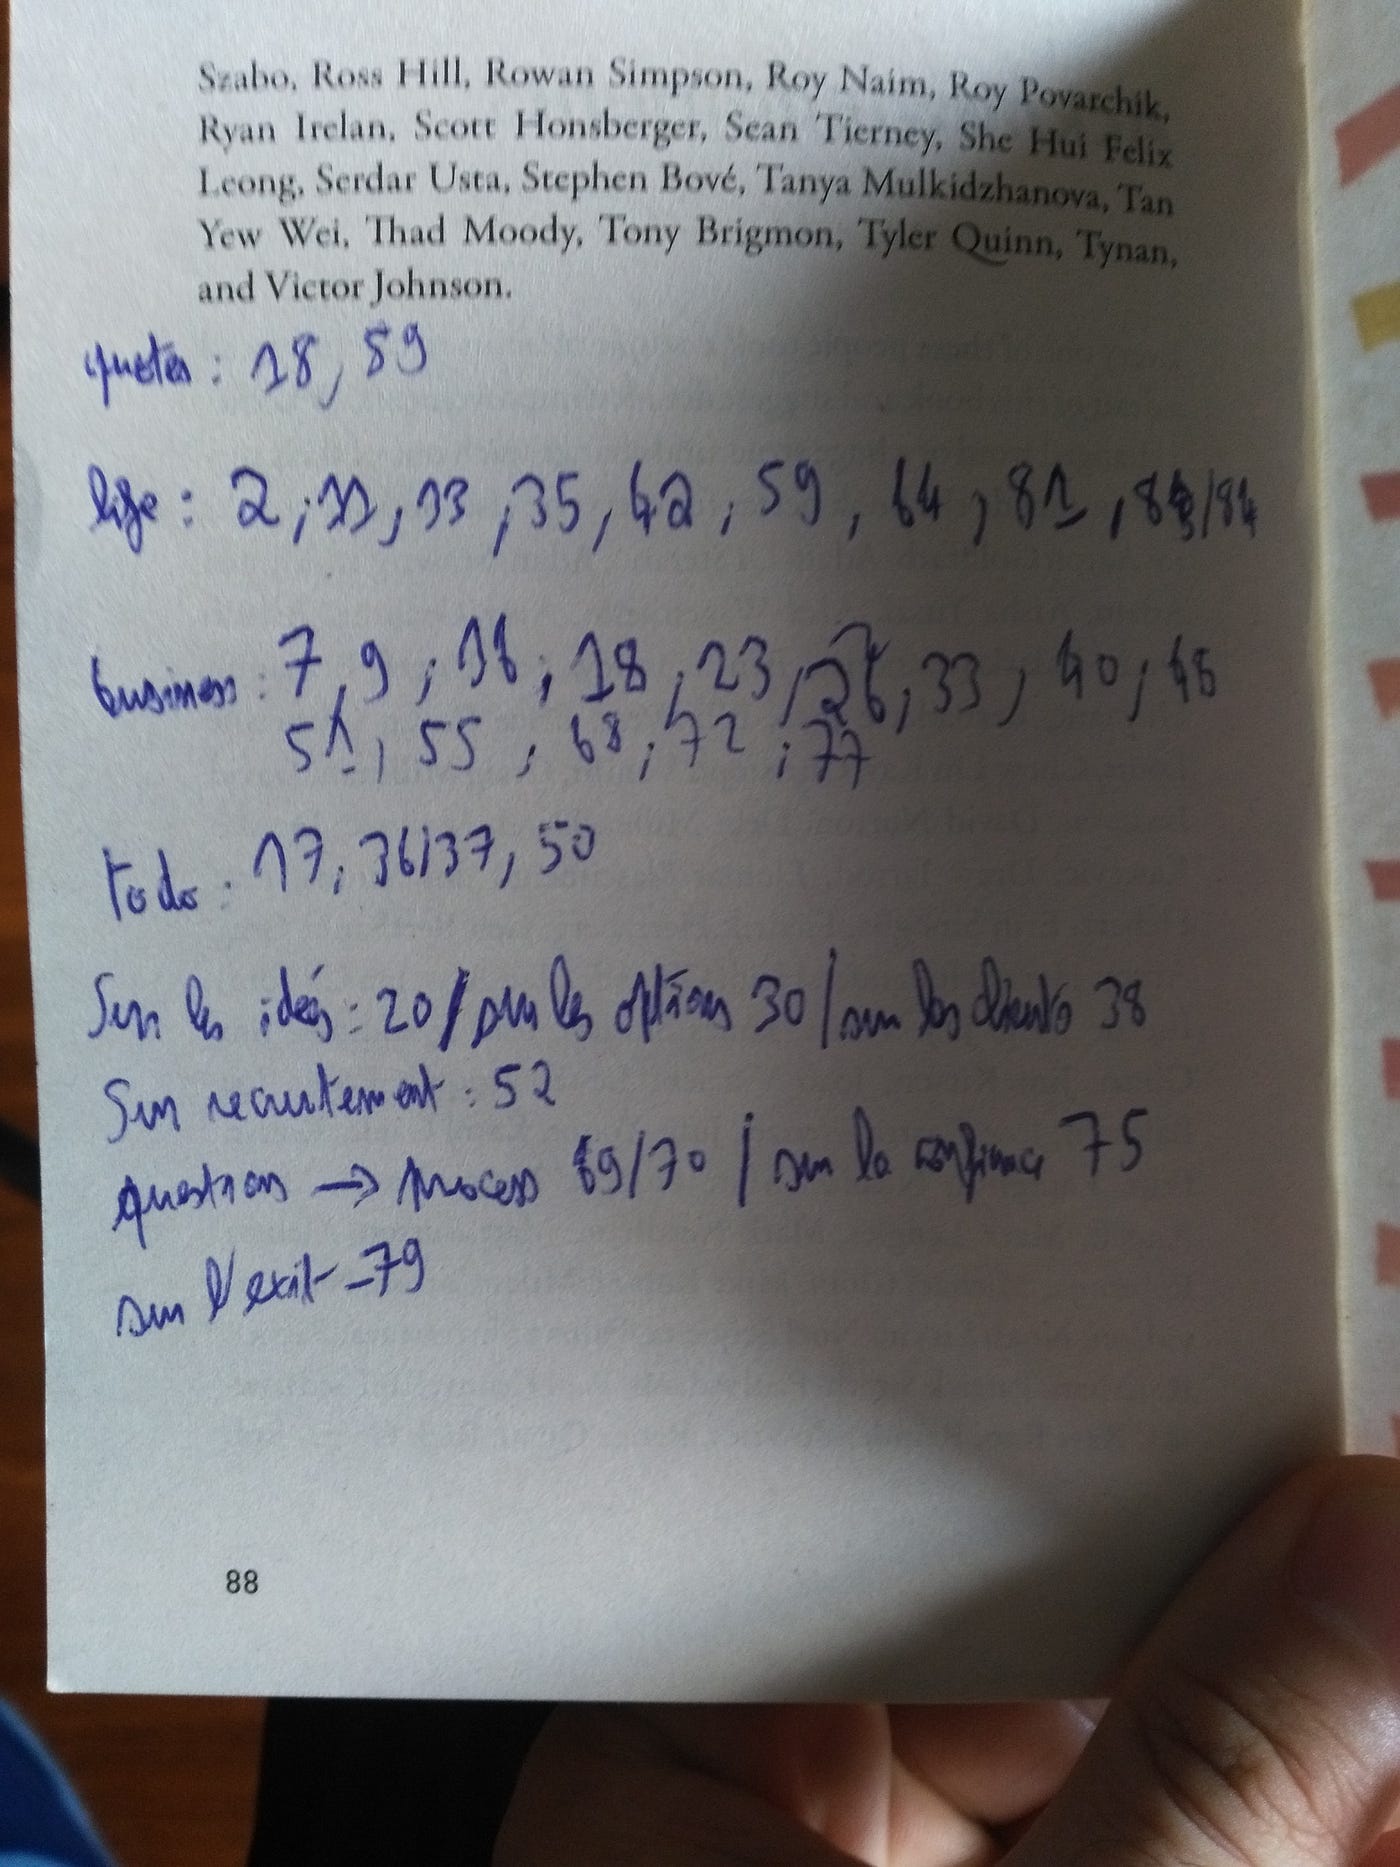 Szabo, Ross Hill, Rowan Simpson, Roy Naim, Roy Povarchik,
Ryan Irelan, Scott Honsberger, Sean Tierney, She Hui Felix
Leong, Serdar Usta, Stephen Bové, Tanya Mulkidzhanova, Tan
Yew Wei, Thad Moody, Tony Brigmon, Tyler Quinn, Tynan,
and Victor Johnson.
quotes : 18, 59
life : 2, 11, 13, 35, 42, 59, 64, 81, 83/84
business : 7, 9, 16, 18, 23, 26, 33, 40, 46
51, 55, 68, 72, 77
todo : 17, 36/37, 50
Sur les idées : 20 / sur les options 30 / sur les clients 38
Sur recrutement : 52
questions → process 69/70 / sur la confiance 75
sur l'exit - 79
88